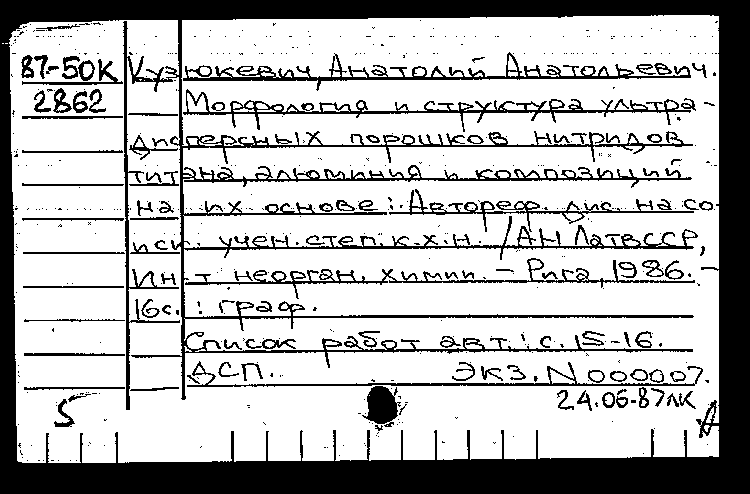 87-50К Кузюкевич, Анатолий Анатольевич.
2862 Морфология и структура ультра-
дисперсных порошков нитридов
титана, алюминия и композиций
на их основе: Автореф. дис. на со-
иск. учен. степ. к.х.н. / АН ЛатвССР,
Ин-т неорган. химии. – Рига, 1986. –
16с. : граф.
Список работ авт.: с. 15-16.
ДСП. Экз. N 000007.
24.06.87лк
5 А